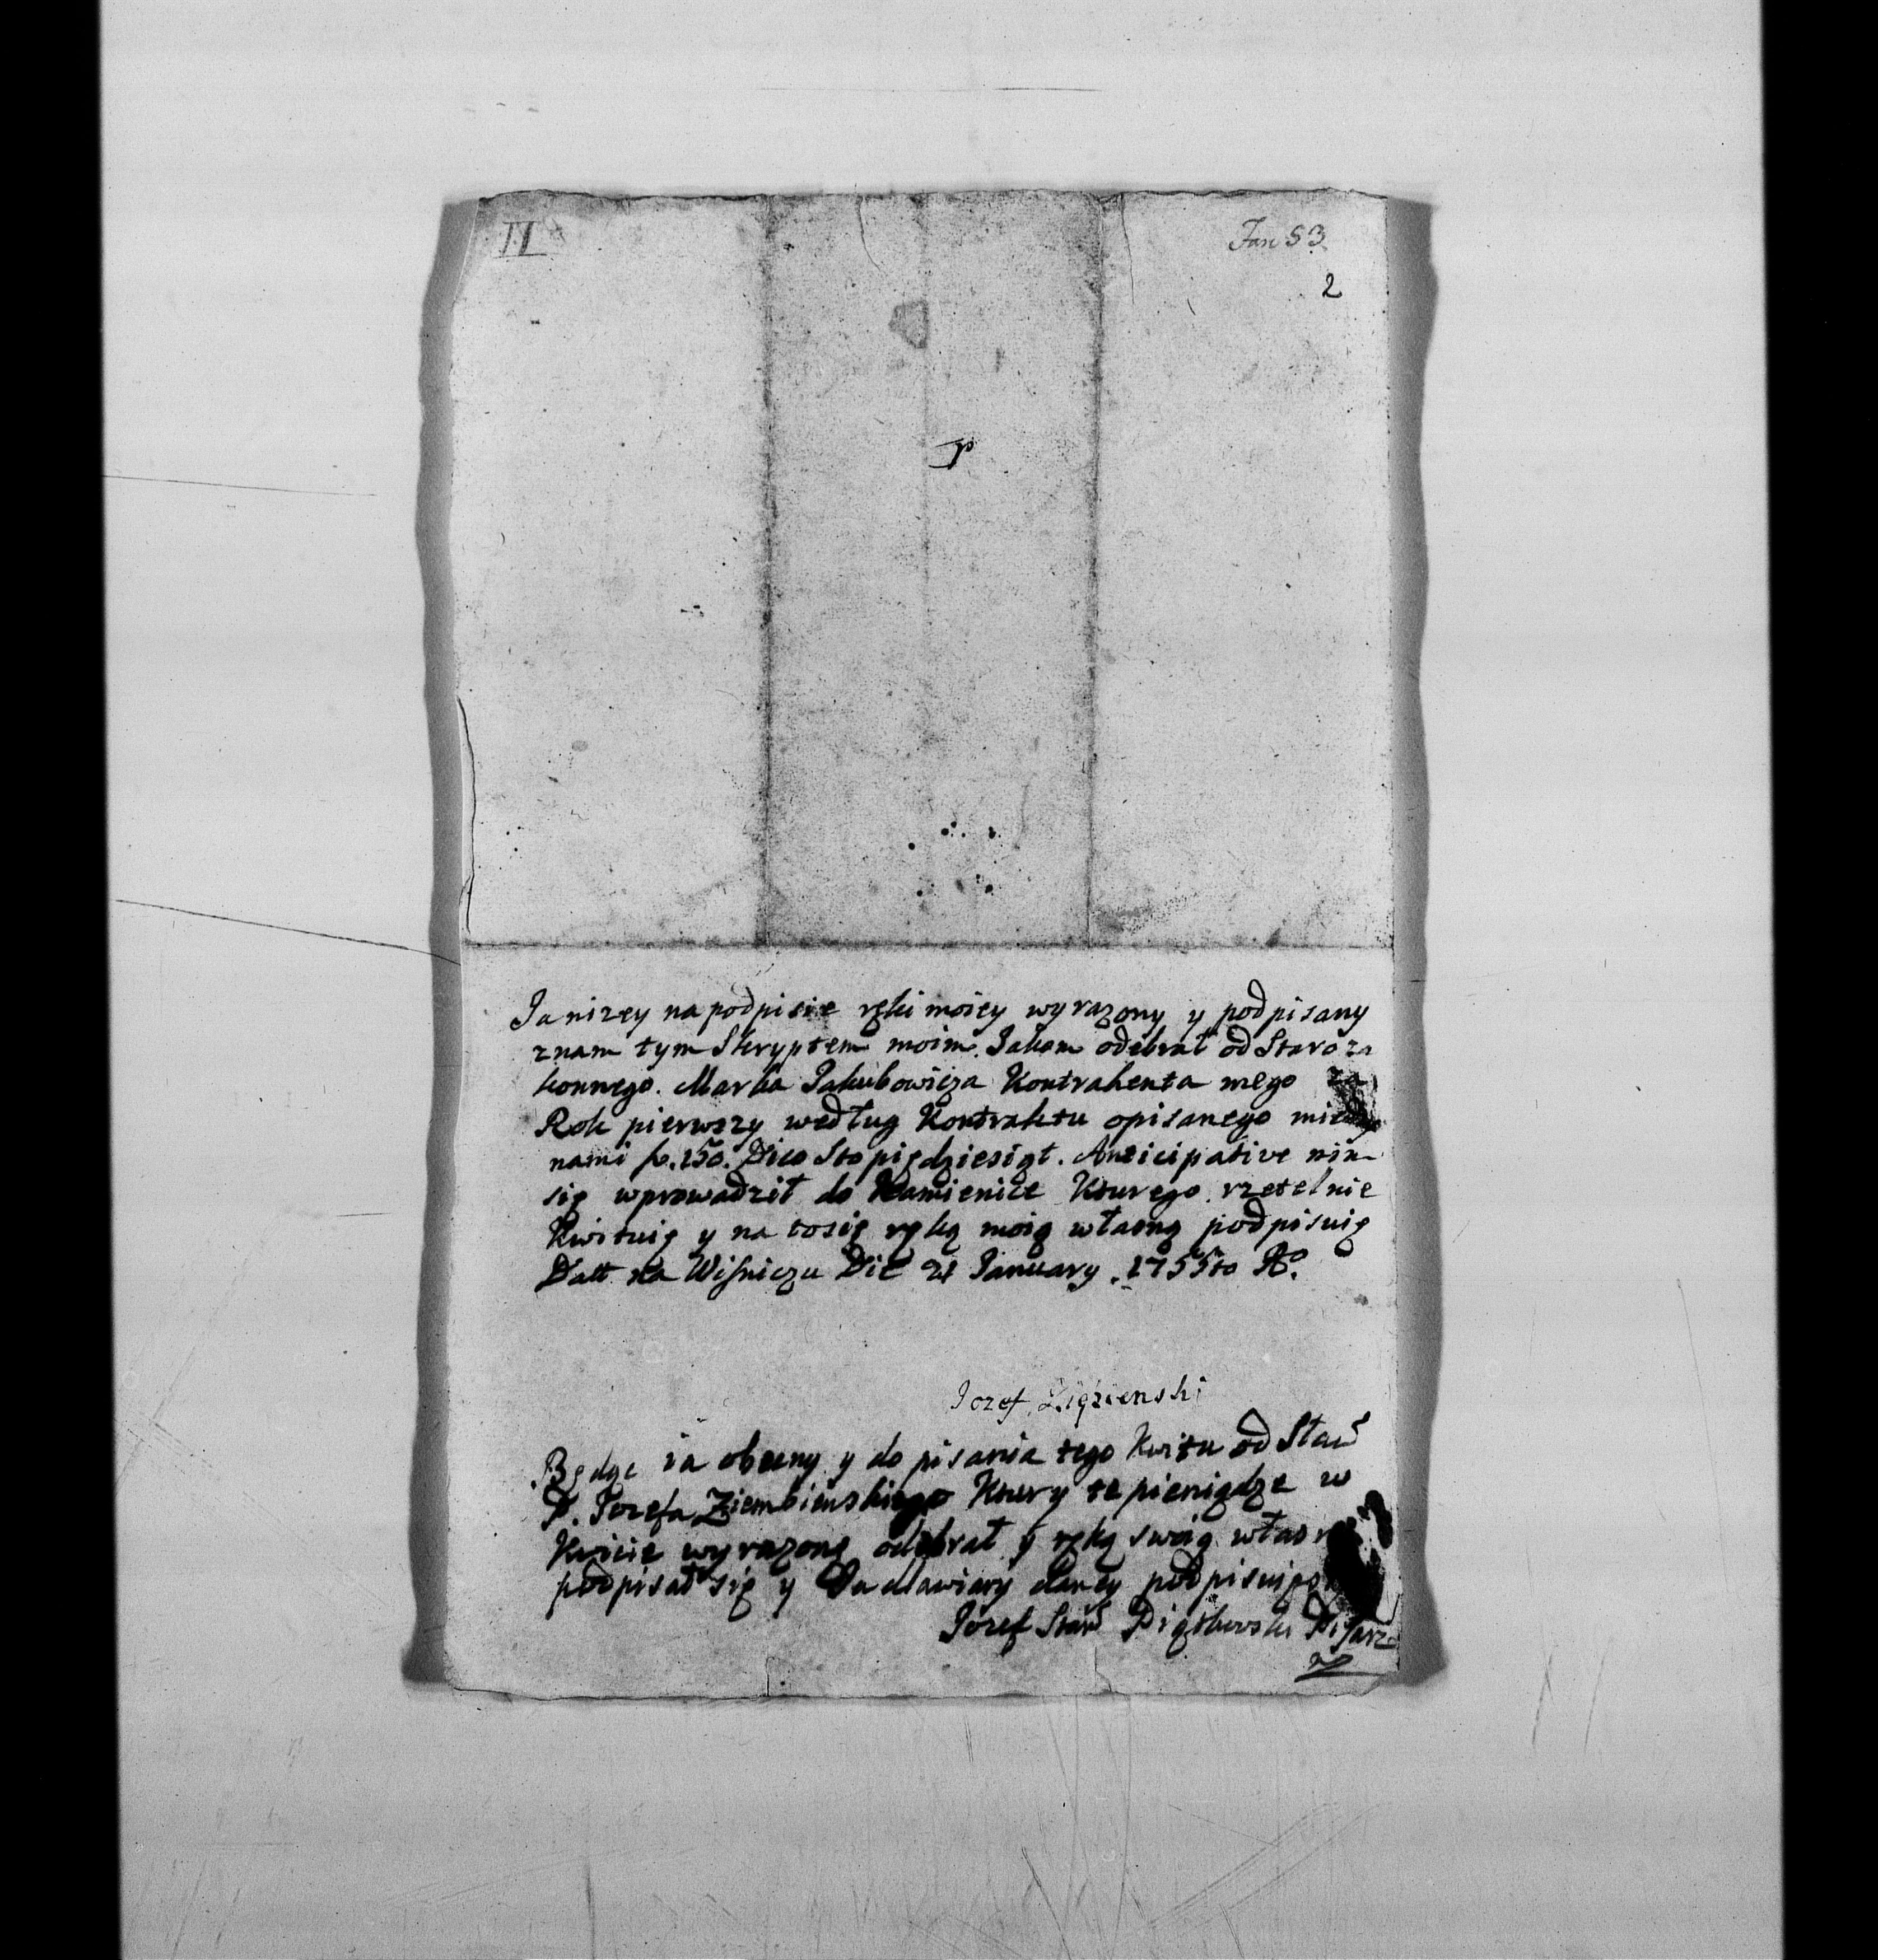 II
Jan 53
2
Ja nizey na podpisie ręki moiey wyrazony y podpisany
znam tym Skryptem moim. Jakom odebrał od Staroza
konnego. Marka Jakubowicza Kontrahenta mego za
Rok pierwszy według Kontraktu opisanego miedzy
nami fr. 150. Dico Sto piędziesiąt. Anticipative nim
się wprowadził do Kamienice Kturego rzetelnie
Kwituię y na tosię ręką moią własną podpisuię
Datt na Wiśniczu Die 21 January 1755to Ao.
Jozef
Będąc ia obecny y do pisania tego Kwitu od Sław
P. Jozefa Ziembienskiego Ktury te pieniądze w
Kwicie wyrazone odebrał y ręką swoią własn
podpisał się y Ja dla wiary podpisuię
Józef Sław Piątkowski Pisarz